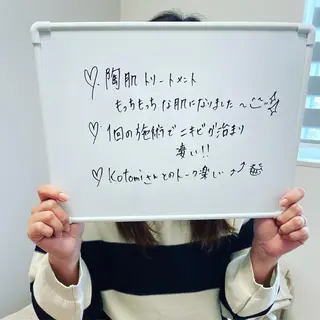 ♡. 陶肌トリートメント
もっちもっちな肌になりました〜
♡ 1回の施術でニキビが治まり
凄い!!
♡ Kotomiさんとのトーク楽しい⤴